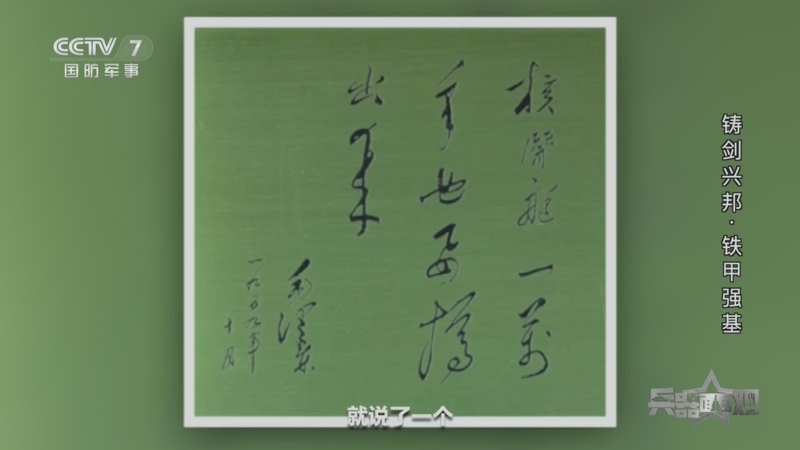 CCTV 7
国防军事
核潜艇一萬
年也要搞
出来
毛泽东
一九五九年
十月
铸剑兴邦·铁甲强基
兵器面面观
就说了一个